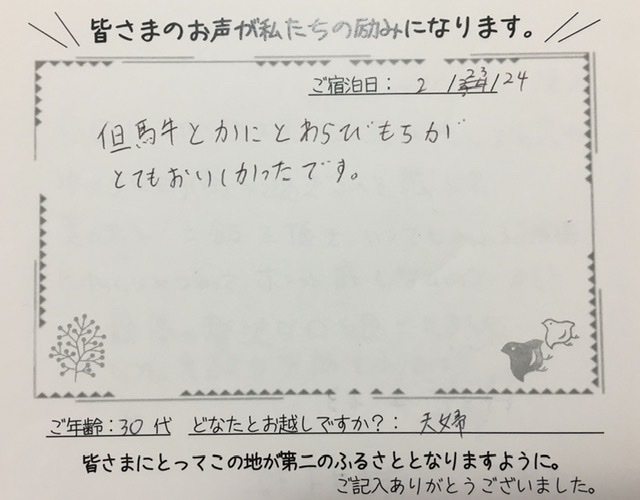 皆さまのお声が私たちの励みになります。
ご宿泊日： 2 / 23 / 24
但馬牛とかにとわらびもちが
とてもおいしかったです。
ご年齢：30 代 どなたとお越しですか？： 夫婦
皆さまにとってこの地が第二のふるさととなりますように。
ご記入ありがとうございました。